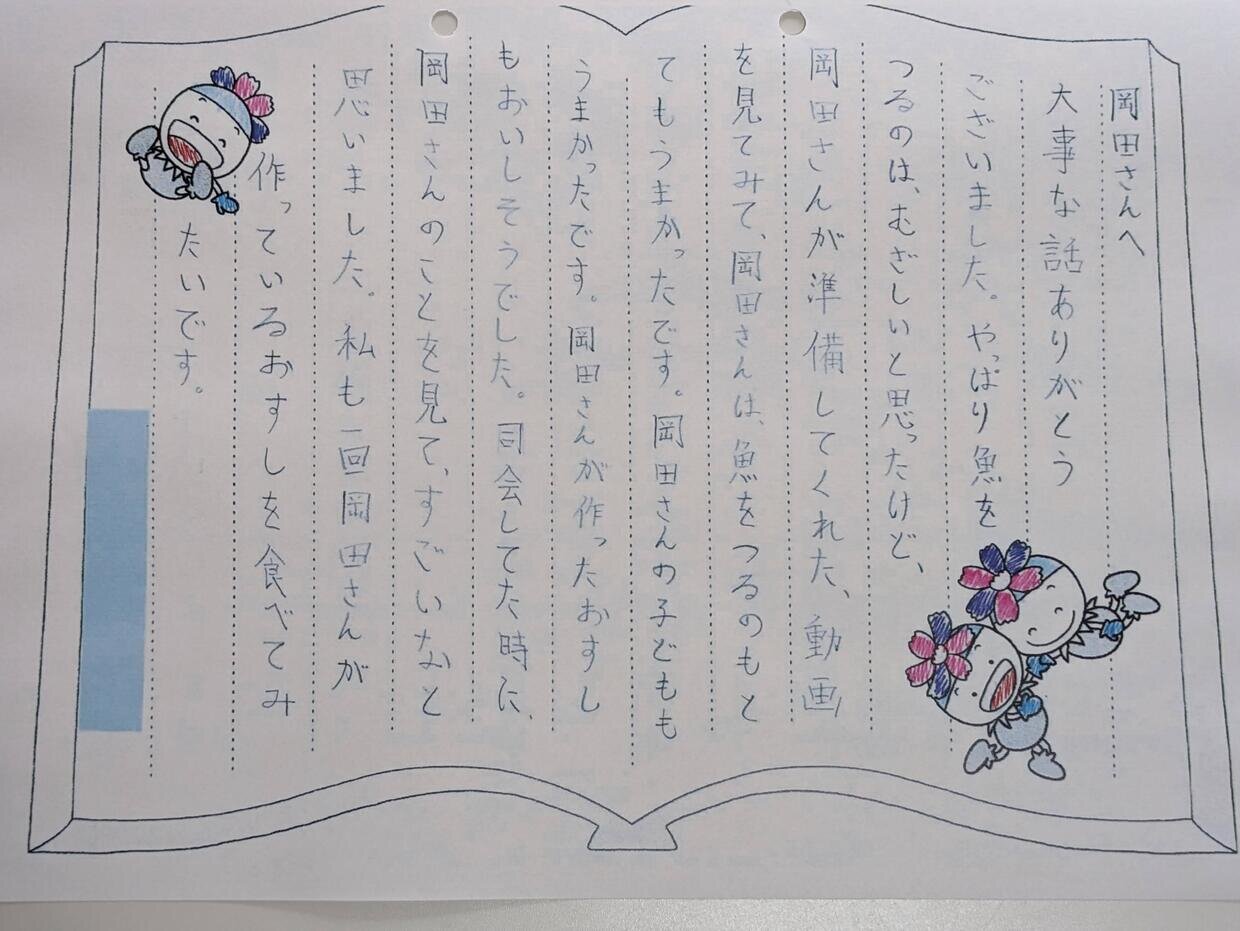 岡田さんへ
大事な話ありがとう
ございました。やっぱり魚を
つるのは、むずしいと思ったけど、
岡田さんが準備してくれた、動画
を見てみて、岡田さんは、魚をつるのもと
てもうまかったです。岡田さんの子どもも
うまかったです。岡田さんが作ったおすし
もおいしそうでした。司会してた時に、
岡田さんのことを見て、すごいなと
思いました。私も一回岡田さんが
作っているおすしを食べてみ
たいです。